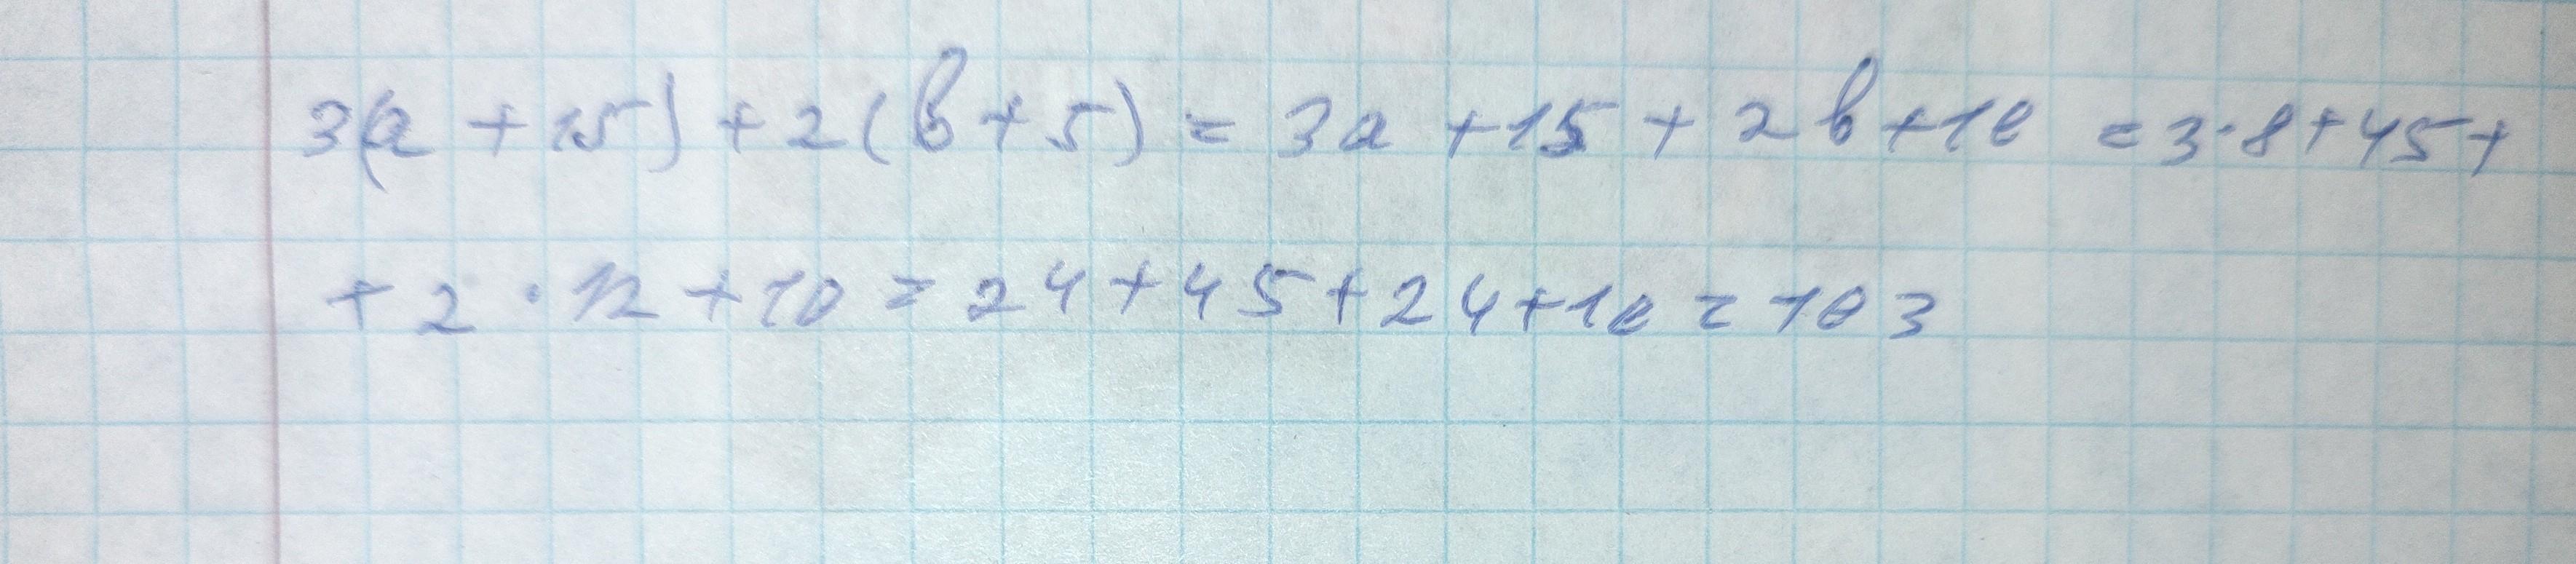 3(a + 15) + 2(b + 5) = 3a + 15 + 2b + 10 = 3·8 + 45 +
+ 2 · 12 + 10 = 24 + 45 + 24 + 10 = 103